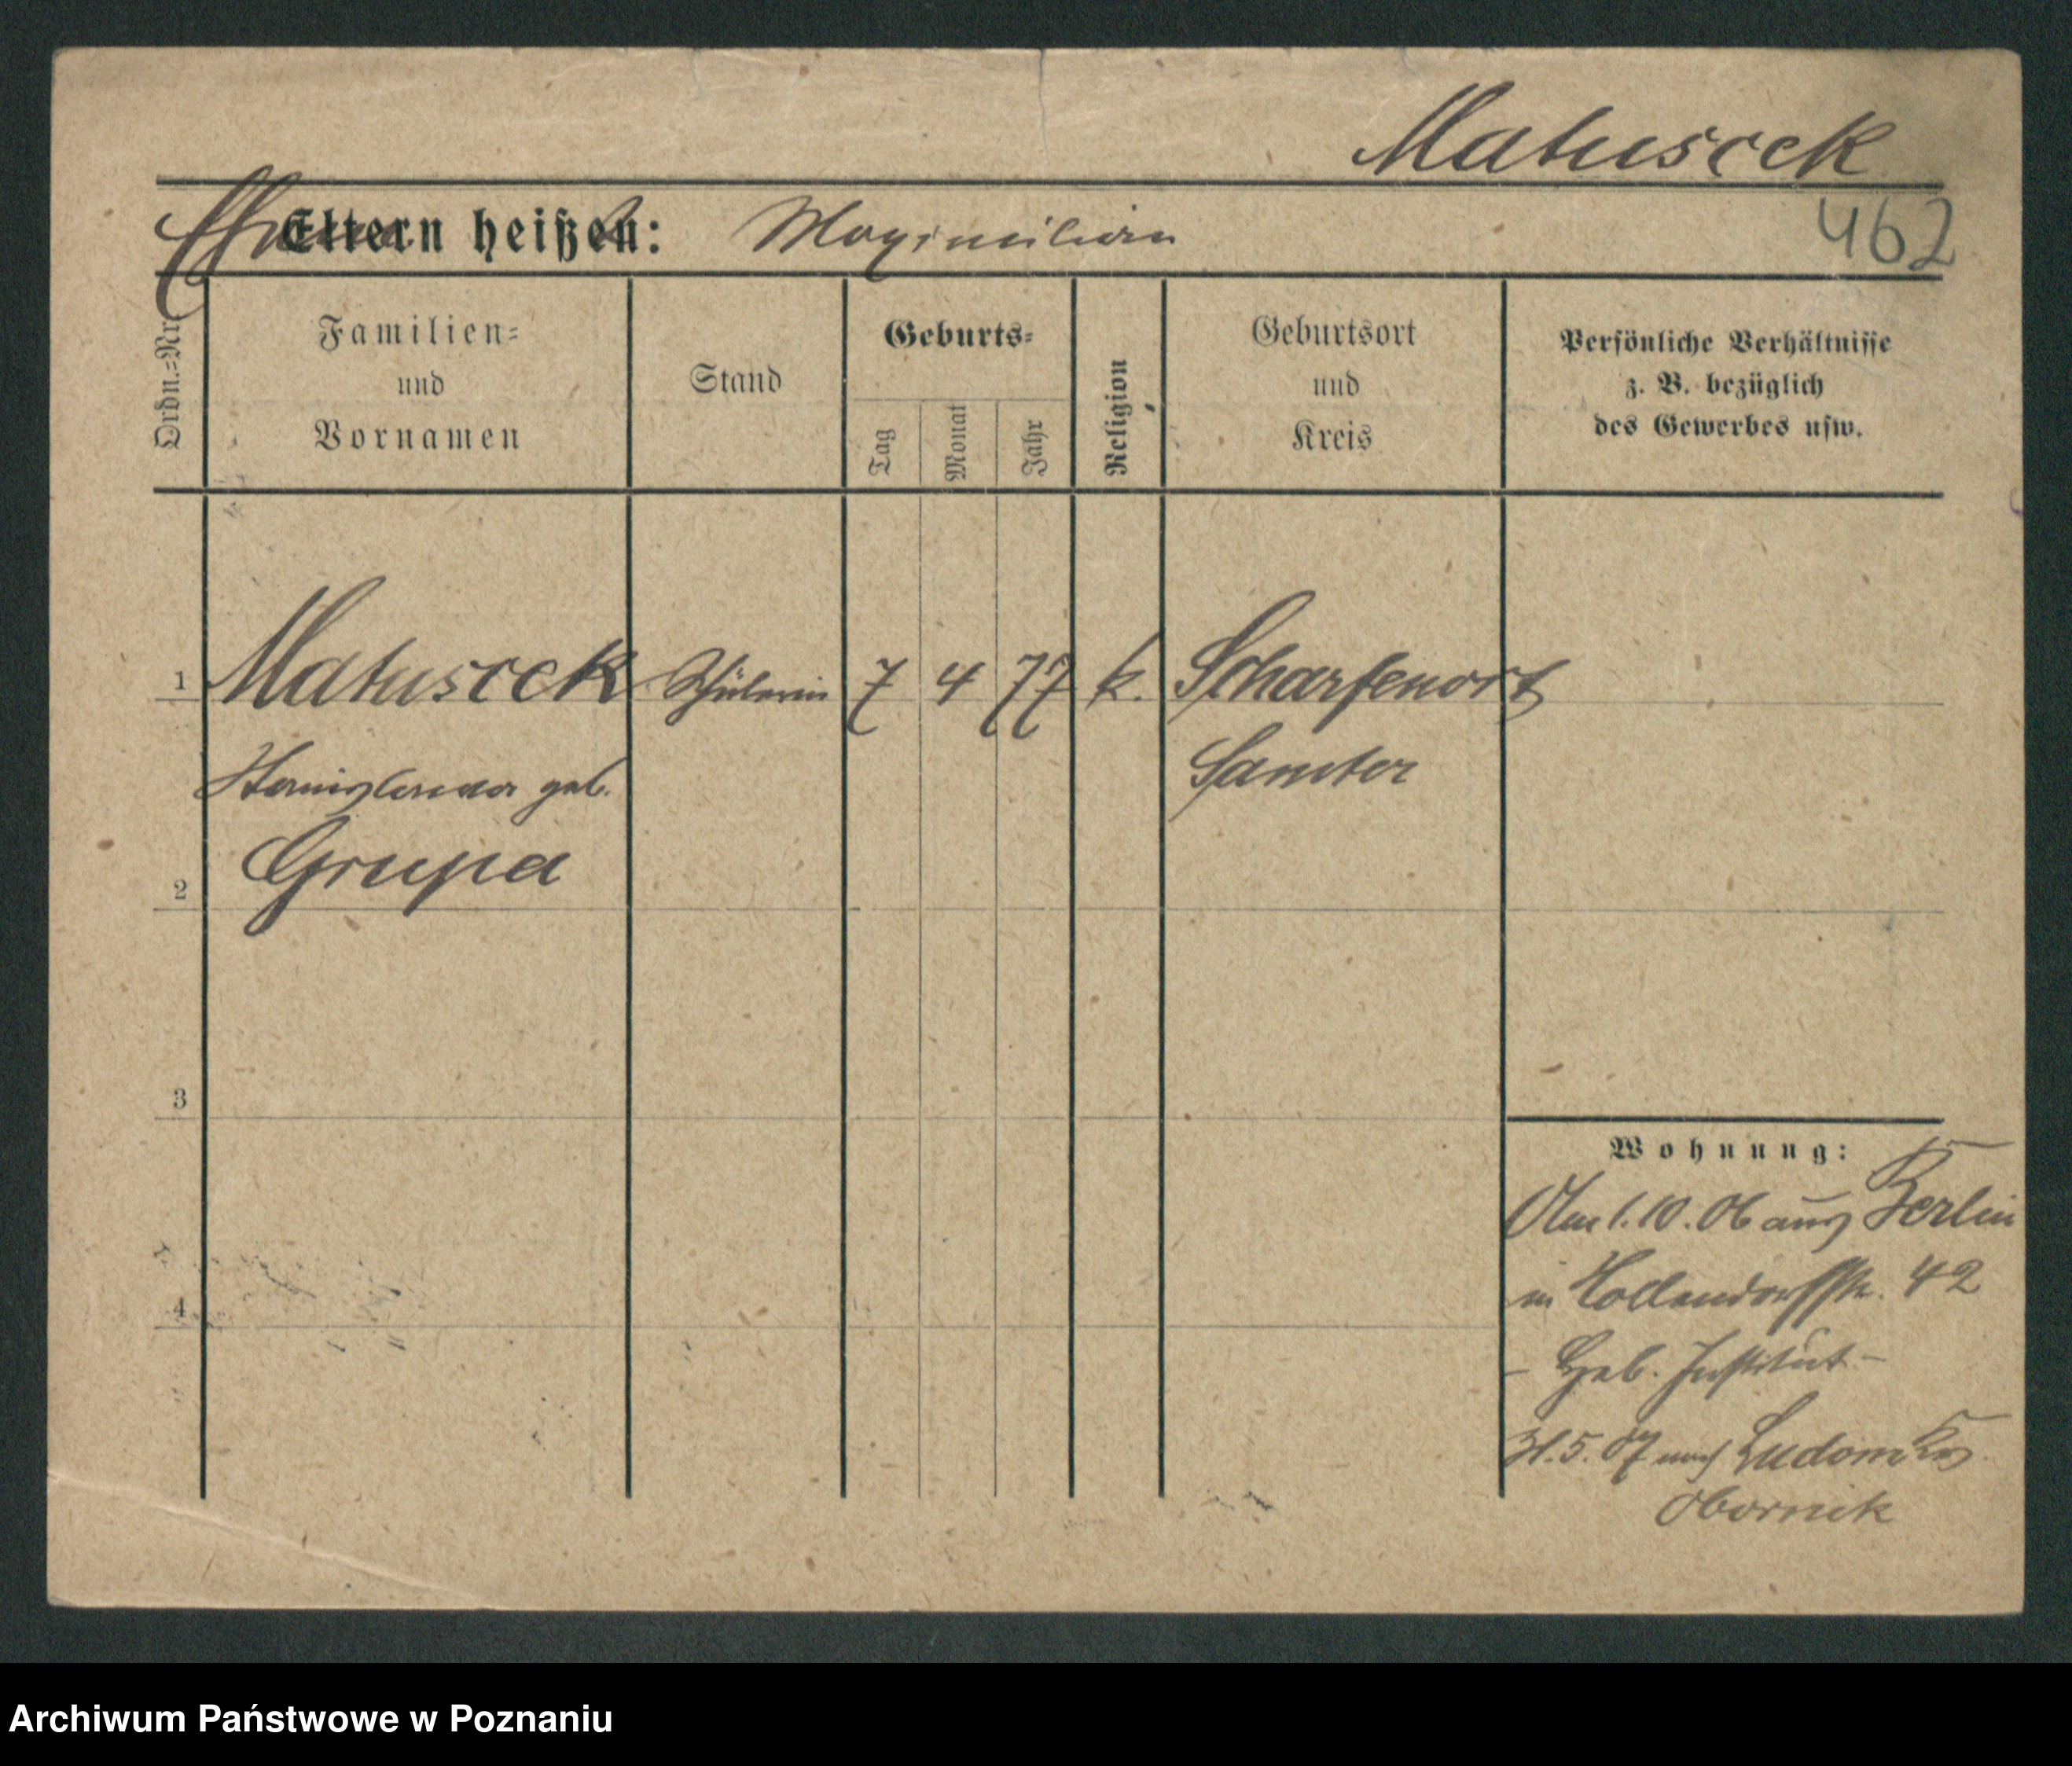 Matuscek
Eltern heißen: Maximilian
462
Ordn.=Nr.
Familien=
und
Vornamen
Stand
Geburts=
Tag
Monat
Jahr
Religion
Geburtsort
und
Kreis
Persönliche Verhältnisse
z. B. bezüglich
des Gewerbes usw.
1 Matuscek Schülerin 7 4 77 k. Scharfenort
Samter
geb.
2 Grupa
3
4
Wohnung:
Am 1.10.06 aus Berlin
in 42
- Heb. Institut -
31.5.07 nach Ludom Krs
Obornik
Archiwum Państwowe w Poznaniu